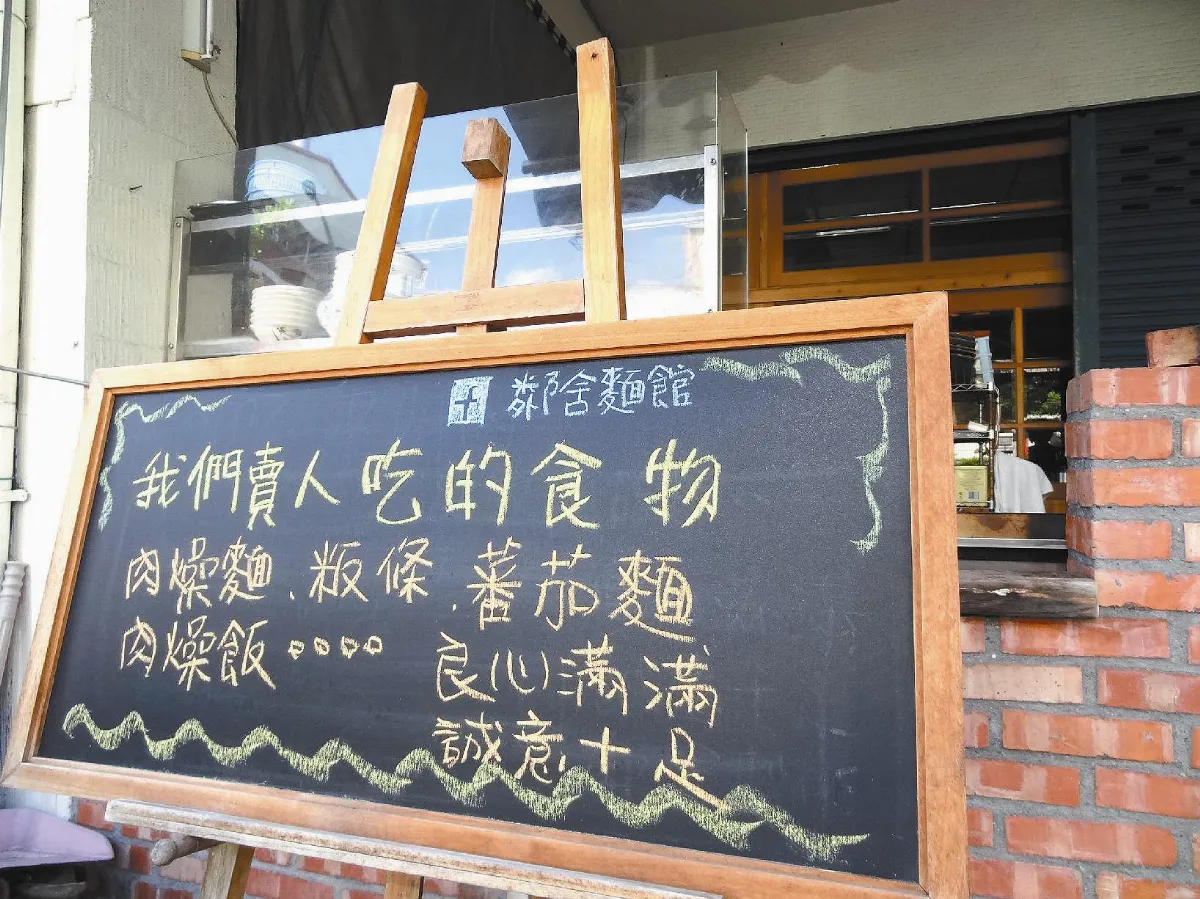 鄰舍麵館
我們賣人吃的食物
肉燥麵、粄條、蕃茄麵
肉燥飯。。。。
良心滿滿
誠意十足